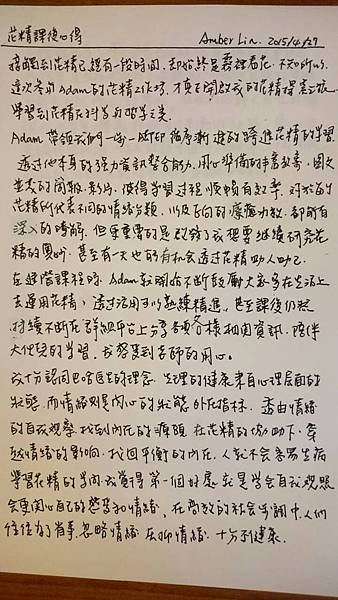 花精課後心得 Amber Lin. 2015/4/27
接觸到花精已經有一段時間,卻始終是霧裡看花,不知所以
這次參加Adam的花精工作坊,才真正開啟我的花精探索之旅
學習到花精在科學與哲學之美
Adam帶領我們一步一腳印循序漸進的踏進花精的學習
透過他本身的強力資訊整合能力,用心準備的書籍教案,圖文
並茂的簡報、影片,使得學習過程順暢有效率,對於每
花精所代表不同的情緒分類,以及正向的療癒功效都所有
深入的瞭解,但更重要的是啟發了我想要繼續研究花
精的奧妙,甚至有一天也能有機會透過花精助人助己.
在進階課程時,Adam就開始不斷鼓勵大家多在生活上
去運用花精,透過活用可以熟練精進,甚至課後仍然
持續不斷在群組平台上分享各項各樣相關資訊,陪伴
大伙兒的學習,我感受到老師的用心。
我十分認同巴哈醫生的理念,生理的健康來自心理層面的
狀態,而情緒則是內心的狀態外在指標,透由情緒
的自我觀察,找到內在的癥頭,在花精的協助下,穿
越情緒的影响,找回平衡的內在,人就不會容易生病
學習花精的當下,我覺得第一個好處就是學會自我觀照
會更關心自己的感受和情緒,在高效的社會步調中,人們
往往為了前事,忽略情緒、压抑情緒,十分不健康.